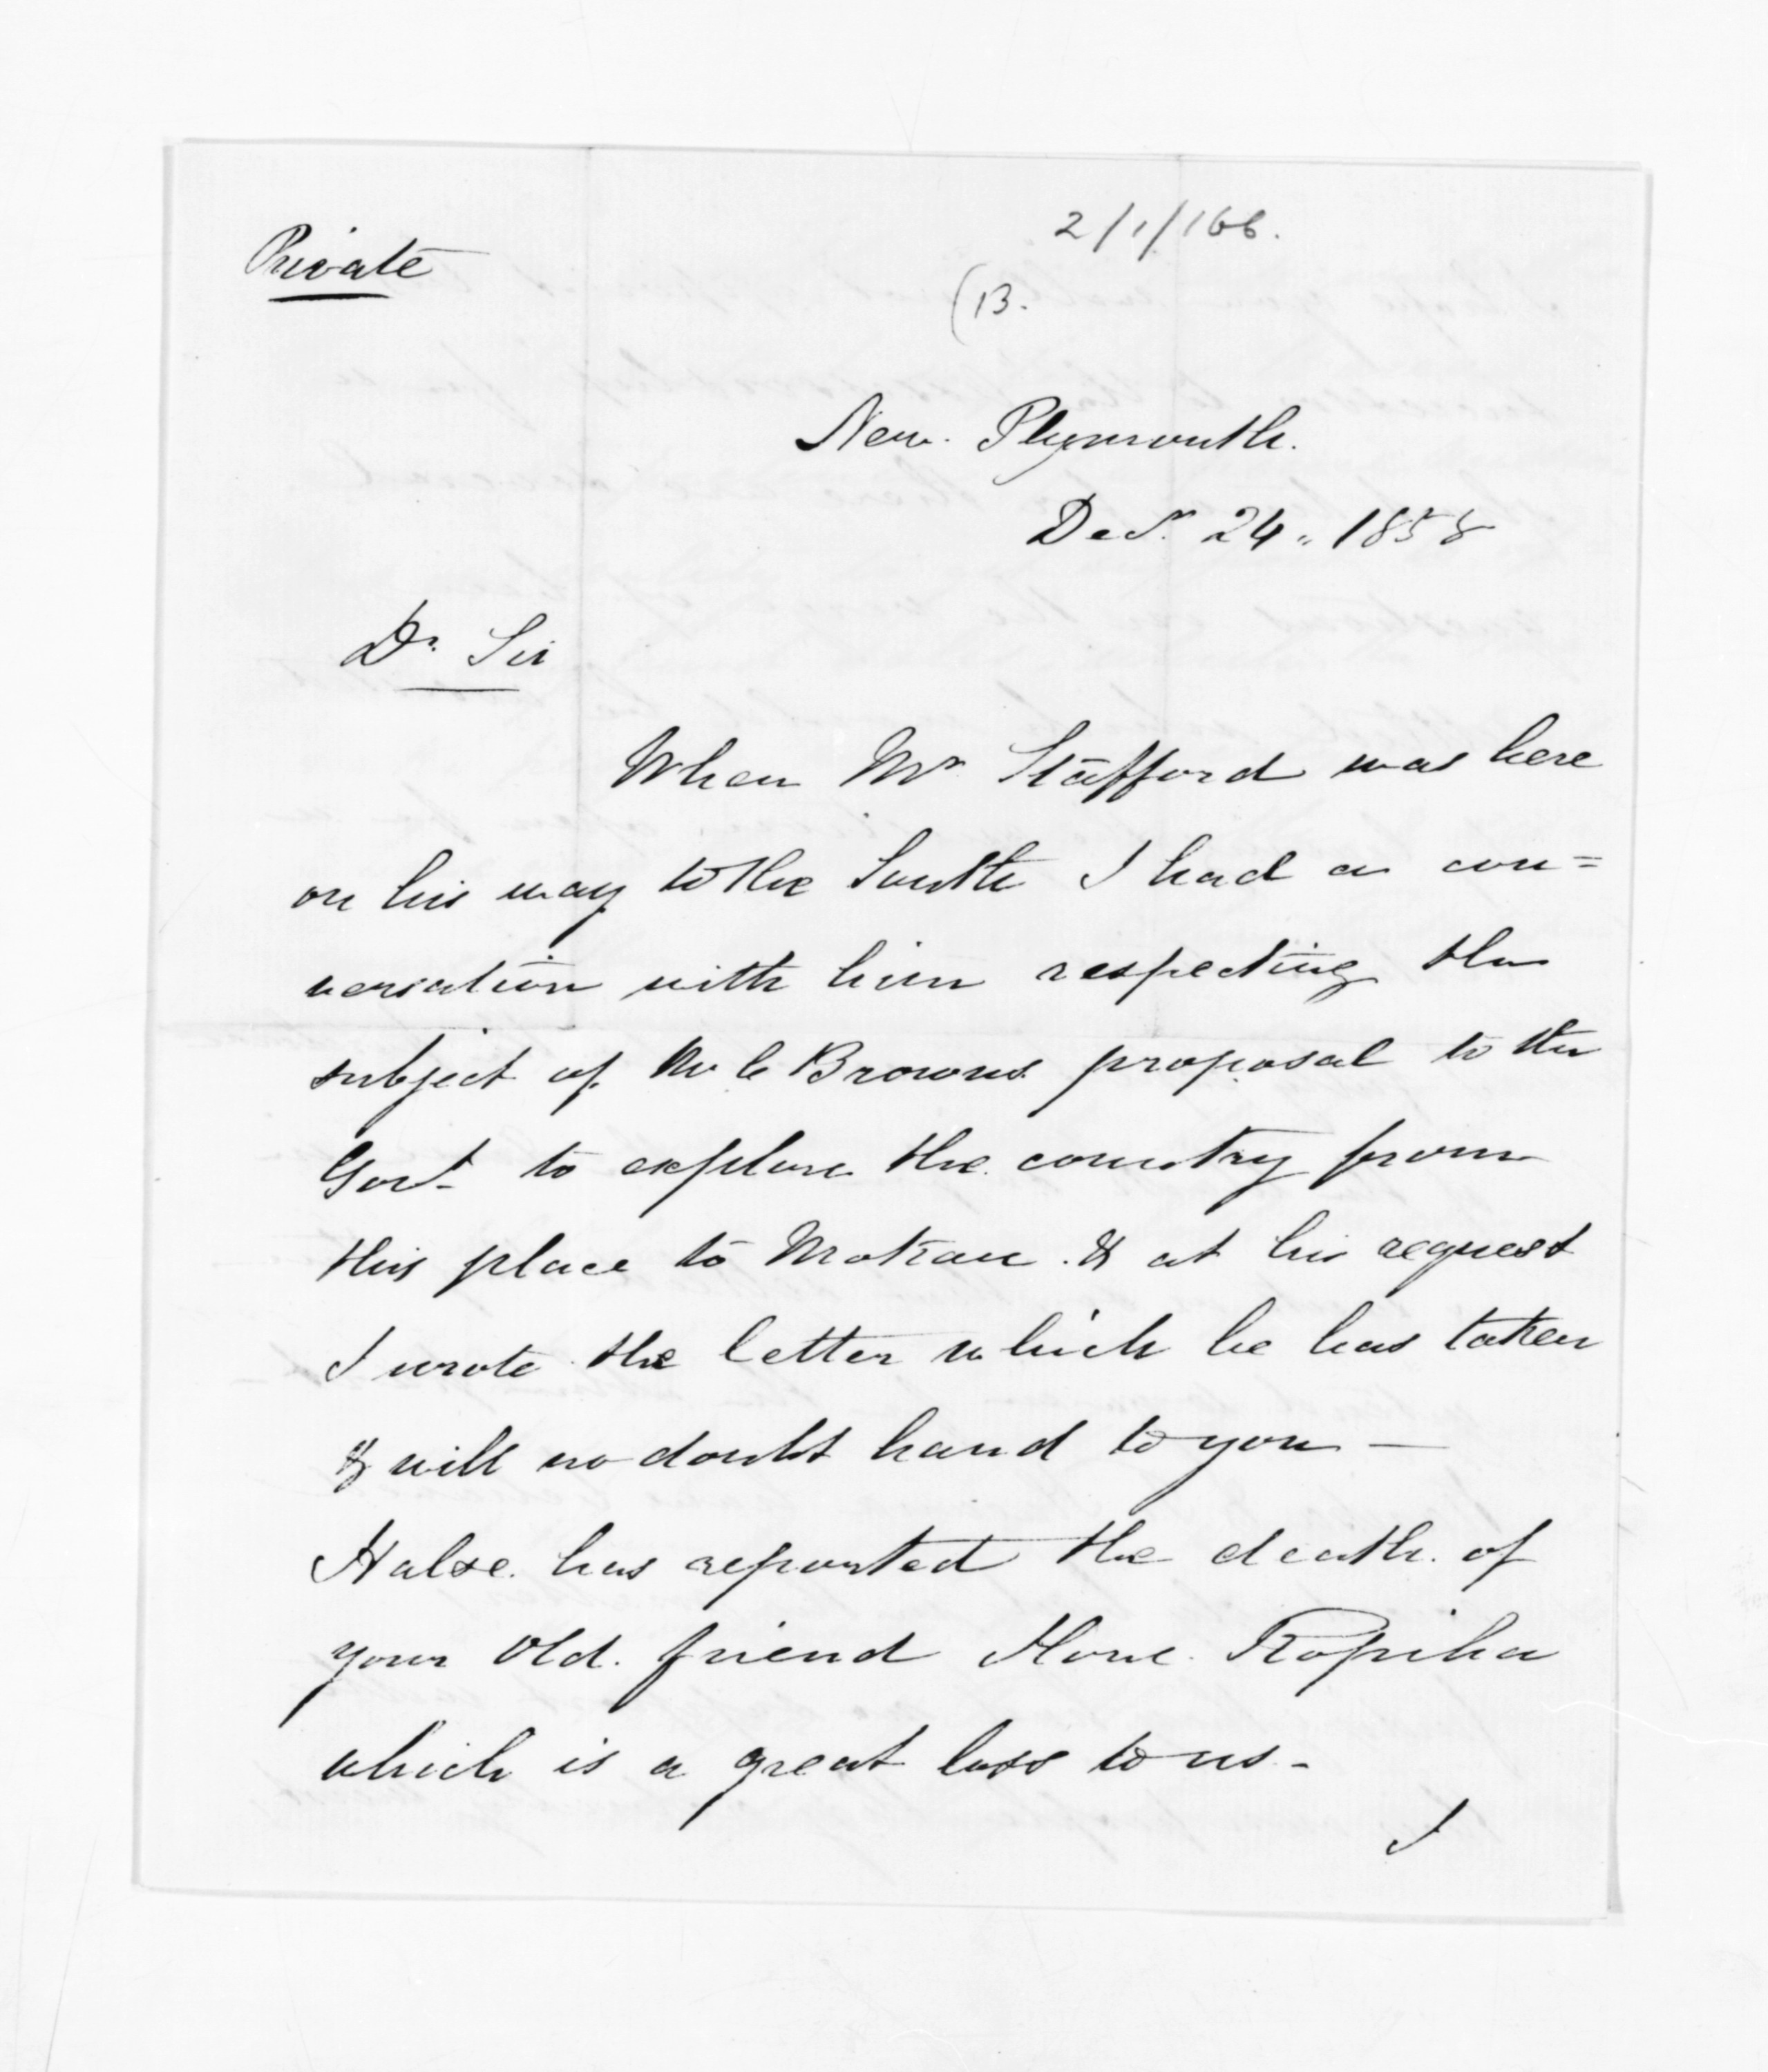 Private
2/1/166.
(13.
New Plymouth.
Decr. 24. 1858
Dr. Sir
When Mr Stafford was here
on his way to the South I had a con=
versation with him respecting the
subject of Mr C Browns proposal to the
Govt to explore the country from
this place to Mokau. & at his request
I wrote the letter which he has taken
& will no doubt hand to you —
Halse has reported the death of
your Old friend Hone Ropiha
which is a great loss to us -
I